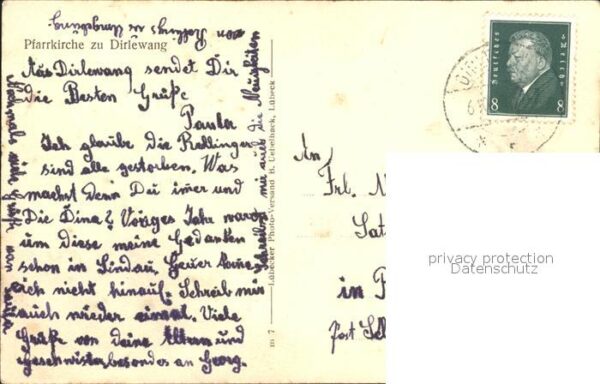 Pfarrkirche zu Dirlewang
Aus Dirlewang sendet Dir
die Besten Grüße
Paula
Ich glaube die
sind alle gestorben. Was
machst Denn Du imer und
Die Dina? Voriges Jahr waret
um diese meine Gedanken
schon in Lindau, Heuer kome
ich nicht hinauf. Schreib mir
auch wieder einmal. Viele
Grüße von deine Eltern und
Geschwister besondes an Georg.
Schreibst mir auch die Neuigkeiten
von
Nochmals viele Grüße von Paula
m 7
Lübecker Photo-Versand H. Uetelhack, Lübeck
Deutsches Reich
8 8
An
Frl.
in
Post
privacy protection
Datenschutz